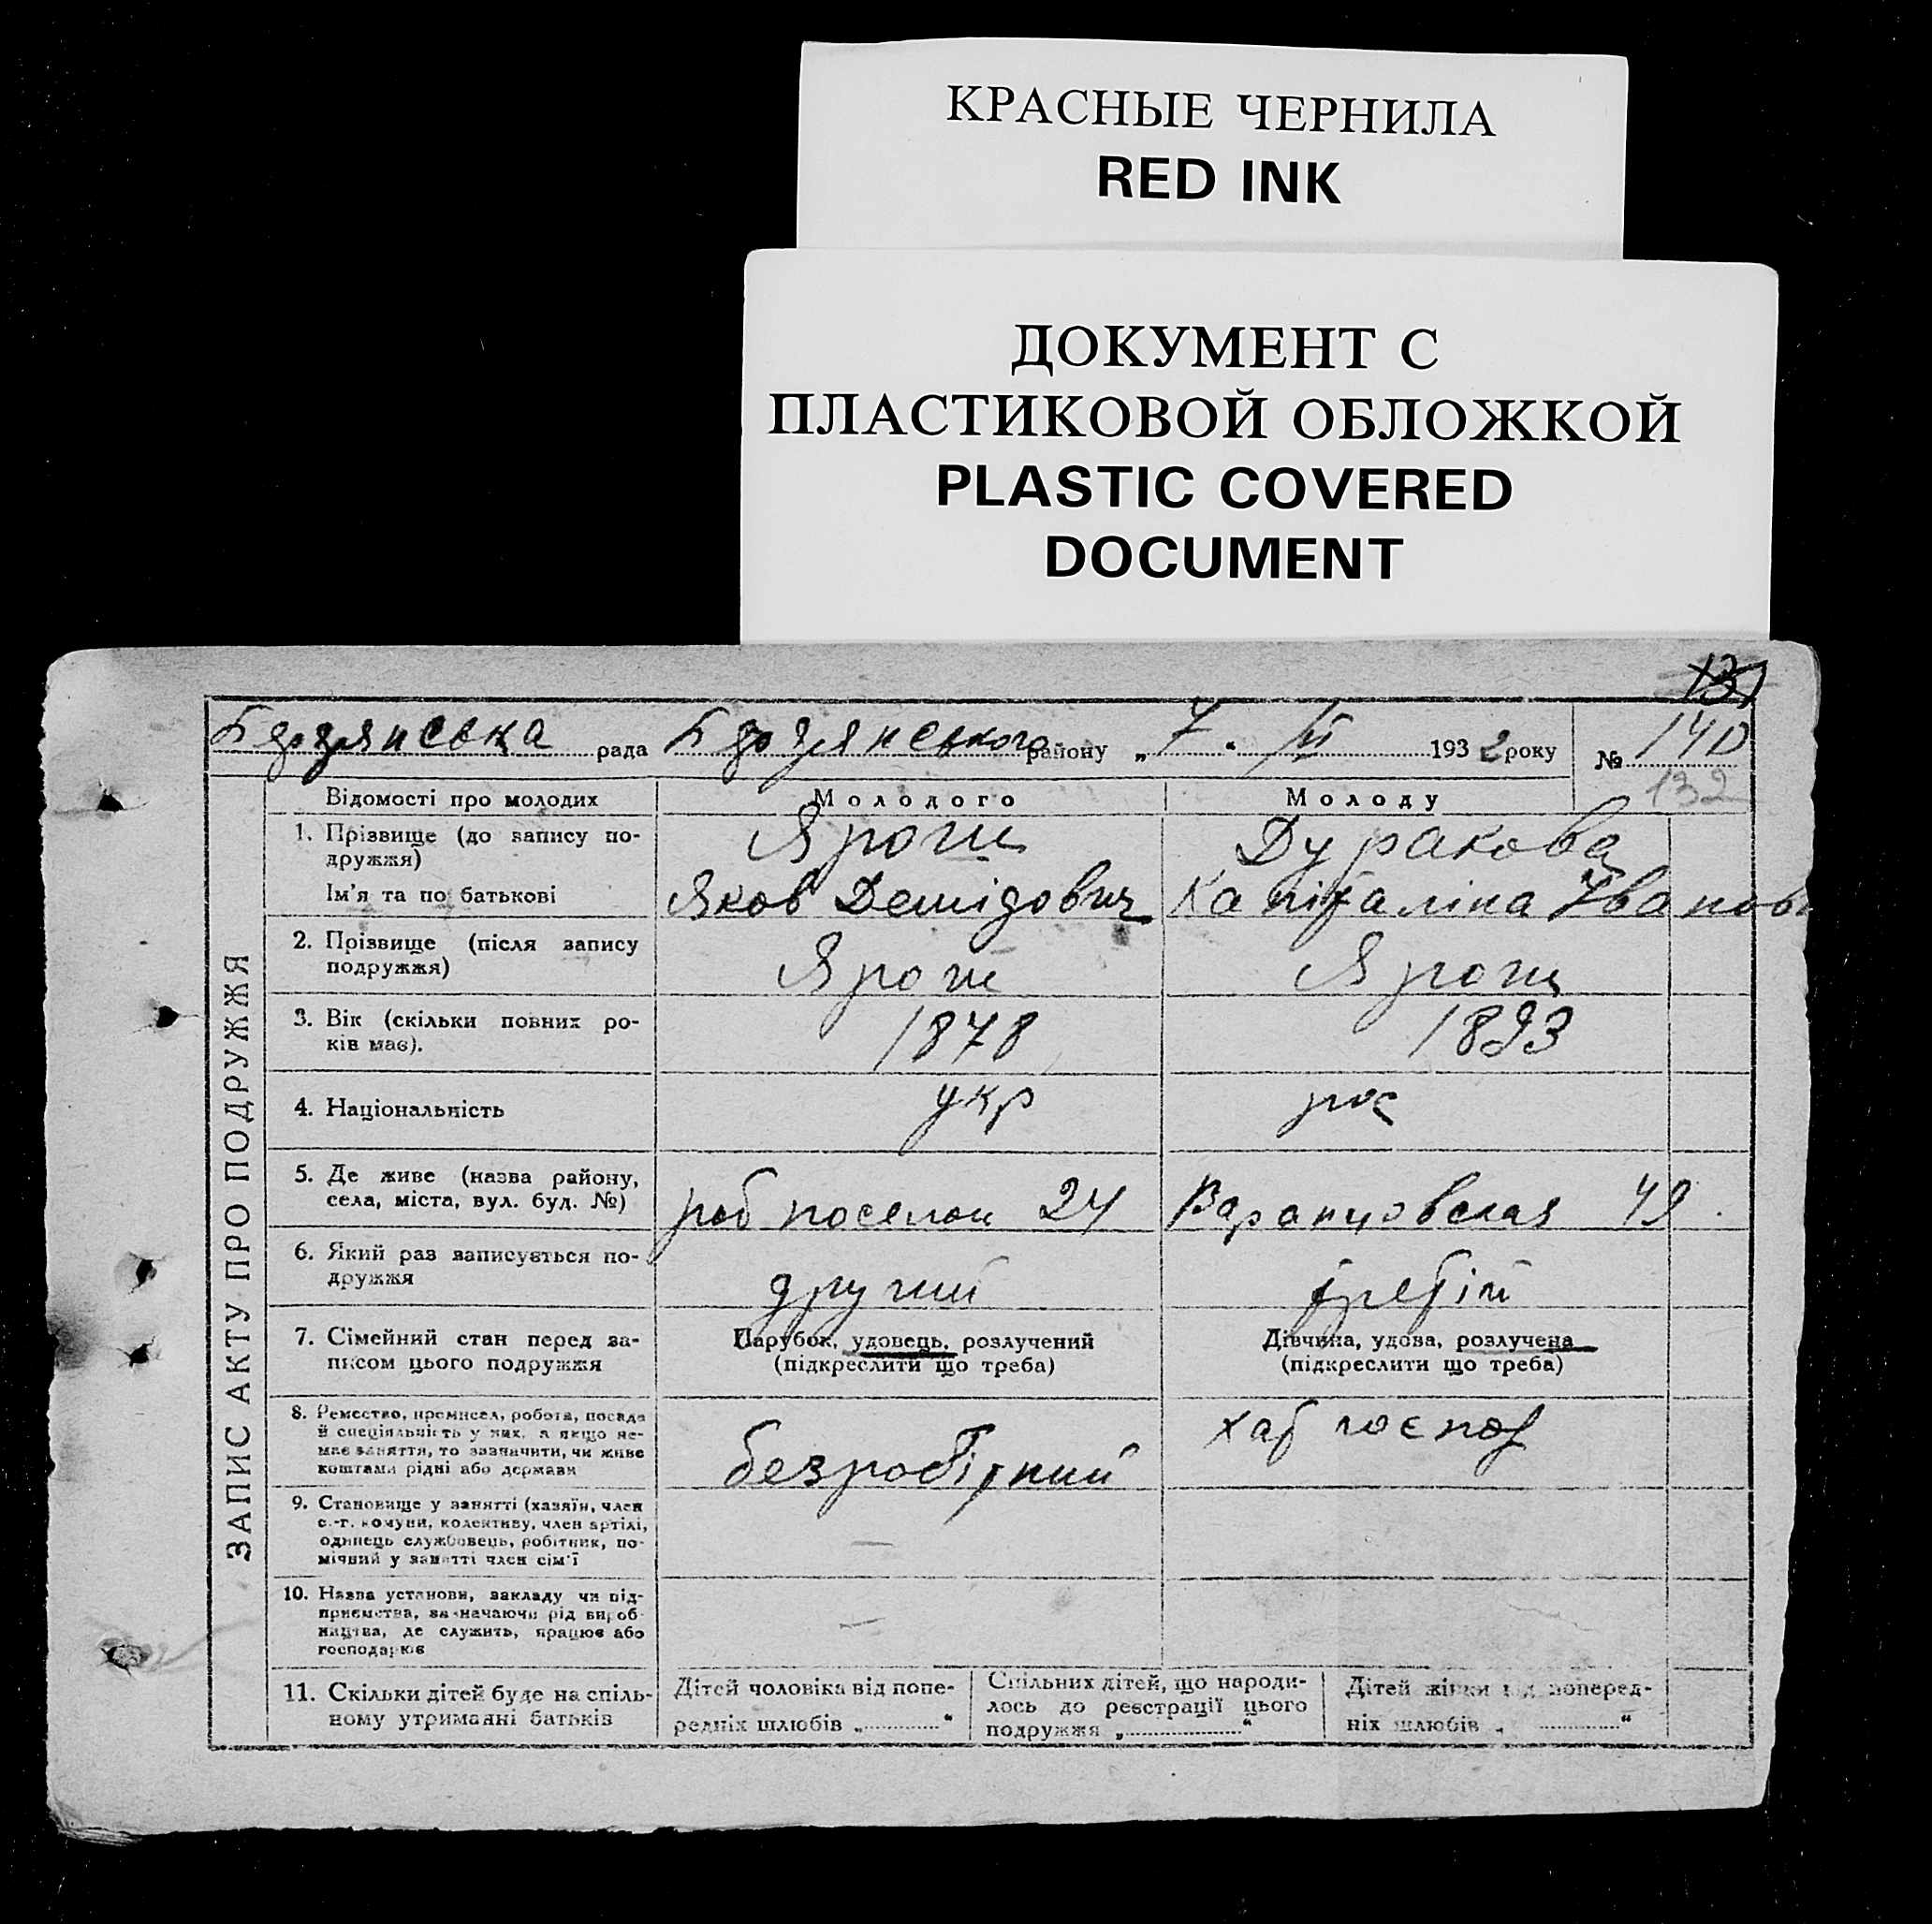 КРАСНЫЕ ЧЕРНИЛА
RED INK
ДОКУМЕНТ С
ПЛАСТИКОВОЙ ОБЛОЖКОЙ
PLASTIC COVERED
DOCUMENT
131
Бердянська рада Бердянського району „7“ VI 1932 року № 140
132
ЗАПИС АКТУ ПРО ПОДРУЖЖЯ
Відомості про молодих Молодого Молоду
1. Прізвище (до запису по-
дружжя)
Ярош Дуракова
Ім'я та по батькові Яков Демідович Капіталіна Іванов
2. Прізвище (після запису
подружжя)
Ярош Ярош
3. Вік (скільки повних ро-
ків має).
1878 1893
4. Національність укр рос
5. Де живе (назва району,
села, міста, вул. буд. №)
роб поселок 24 Варанцовская 49
6. Який раз записується по-
дружжя
другий третій
7. Сімейний стан перед за-
писом цього подружжя
Парубок, удовець, розлучений
(підкреслити що треба)
Дівчина, удова, розлучена
(підкреслити що треба)
8. Ремество, промисел, робота, посада
й спеціяльність у них, а якщо не-
має заняття, то зазначити, чи живе
коштами рідні або держави
безробітний
хат господ
9. Становище у занятті (хазяїн, член
с.-г. комуни, колективу, член артілі,
одинець службовець, робітник, по-
мічний у занятті член сім'ї
—
10. Назва установи, закладу чи під-
приємства, зазначаючи рід вироб-
ництва, де служить, працює або
господарює
—
11. Скільки дітей буде на спіль-
ному утриманні батьків
Дітей чоловіка від попе-
редніх шлюбів „..............“
Спільних дітей, що народи-
лось до реєстрації цього
подружжя „..............“
Дітей жінки від поперед-
ніх шлюбів „..............“